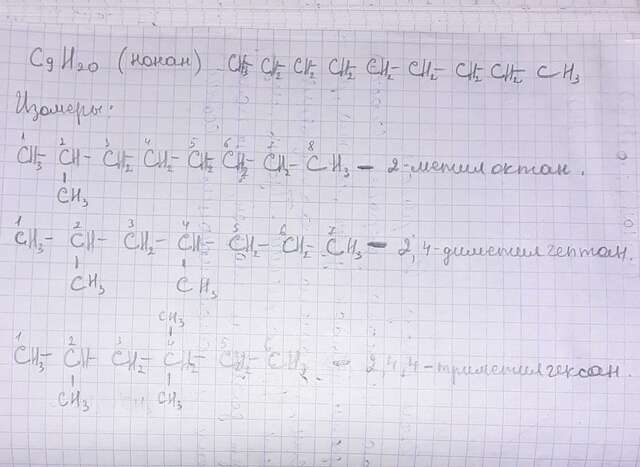 C9H20 (нонан) CH3- CH2- CH2- CH2- CH2- CH2- CH2- CH2- CH3
Изомеры:
1 2 3 4 5 6 7 8
CH3- CH- CH2- CH2- CH2- CH2- CH2- CH3 - 2-метилоктан.
CH3
1 2 3 4 5 6 7
CH3- CH- CH2- CH- CH2- CH2- CH3 - 2,4-диметилгептан.
CH3 CH3
CH3
1 2 3 4 5 6
CH3- CH- CH2- CH2- CH2- CH3 - 2,4,4-триметилгексан.
CH3 CH3